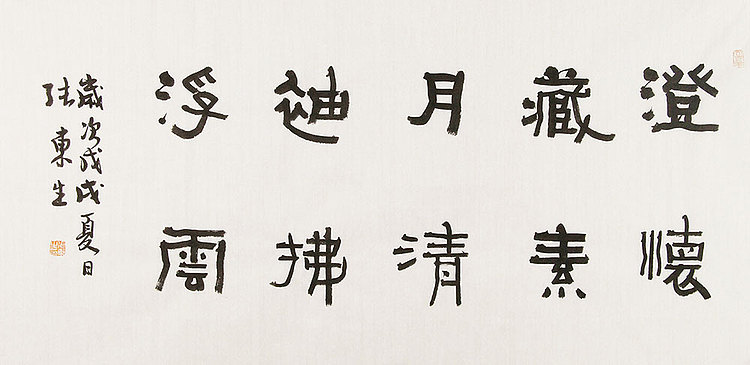 澄懷
藏素
月清
袖拂
浮雲
歲次戊戌夏日
张東生